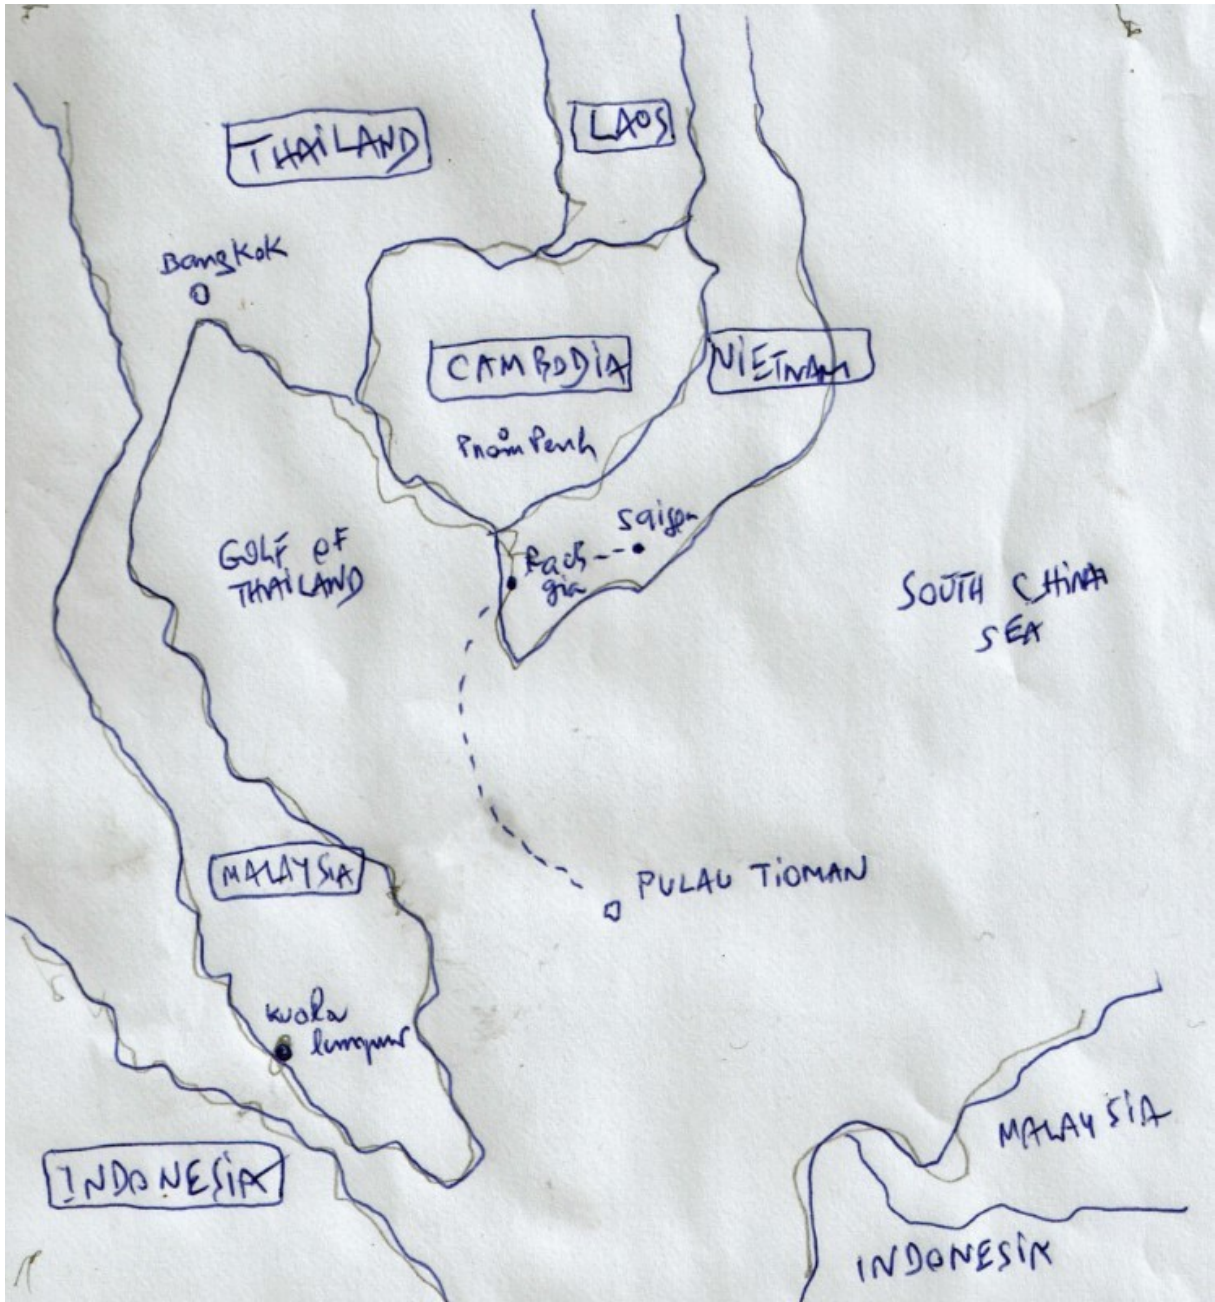 THAILAND
LAOS
Bangkok
CAMBODIA
VIETNAM
Pnom Penh
Saigon
Rach
gia
GOLF OF
THAILAND
SOUTH CHINA
SEA
PULAU TIOMAN
MALAYSIA
Kuala
lumpur
MALAYSIA
INDONESIA
INDONESIA